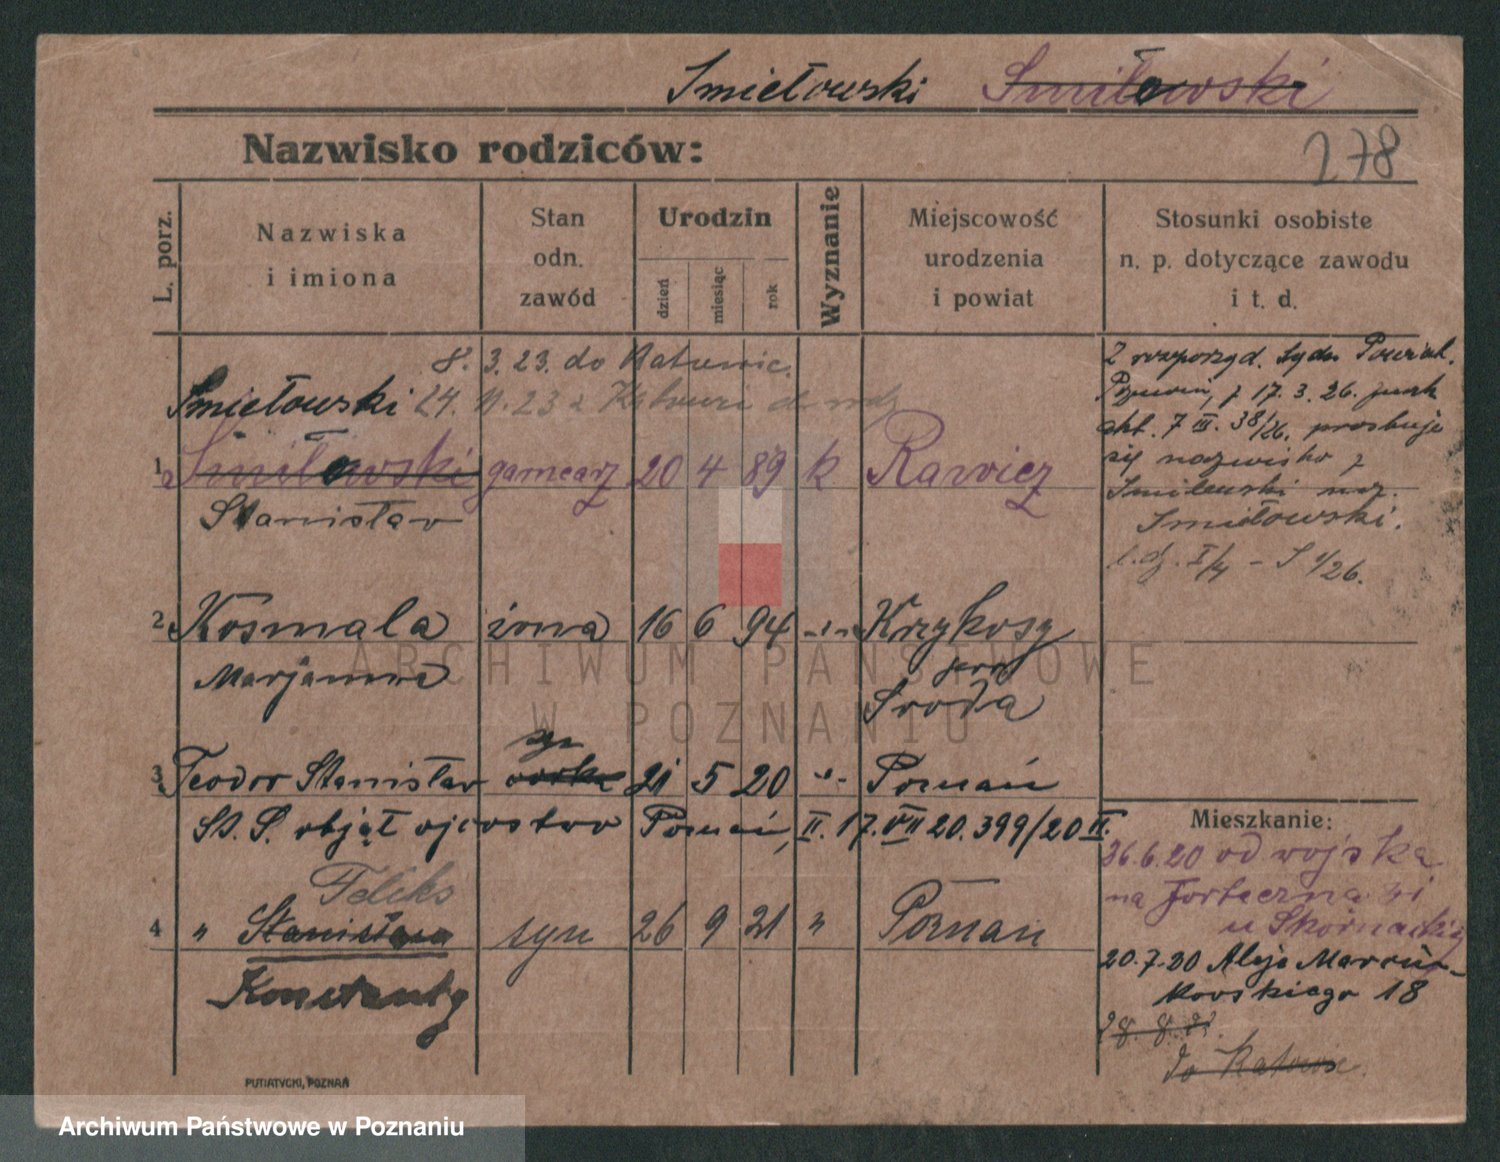 Smiełowski Smiłowski
Nazwisko rodziców:
278
L. porz.
Nazwiska
i imiona
Stan
odn.
zawód
Urodzin
dzień
miesiąc
rok
Wyznanie
Miejscowość
urodzenia
i powiat
Stosunki osobiste
n. p. dotyczące zawodu
i t. d.
8. 3. 23. do Katowic.
Smiełowski 24. 11. 23 z
1 Smiłowski garncarz 20 4 89 k Rawicz
Stanisław
Z rozporząd. Powiat.
17. 3. 26.
akt. 7 III. 38/26. prostuje
się nazwisko z
Smilewski na
Smiełowski.
l. dz. I/4 - S 1/26.
2 Kosmala żona 16 6 94 -"- Krzykosy
Marjanna
Środa
3 Teodor Stanisław syn 21 5 20 -"- Poznań
St. S. objął ojcostwo Poznań, II. 17. VII 20. 399/20 II.
Mieszkanie:
26.6.20 od wojska
na Forteczna
u
Feliks
4 " Stanisław syn 26 9 21 " Poznań
Konstanty
20.7.20 Aleje Marcin-
kowskiego 18
28. 8. 21.
do Katowic
PUTIATYCKI, POZNAŃ
ARCHIWUM PAŃSTWOWE
W POZNANIU
Archiwum Państwowe w Poznaniu